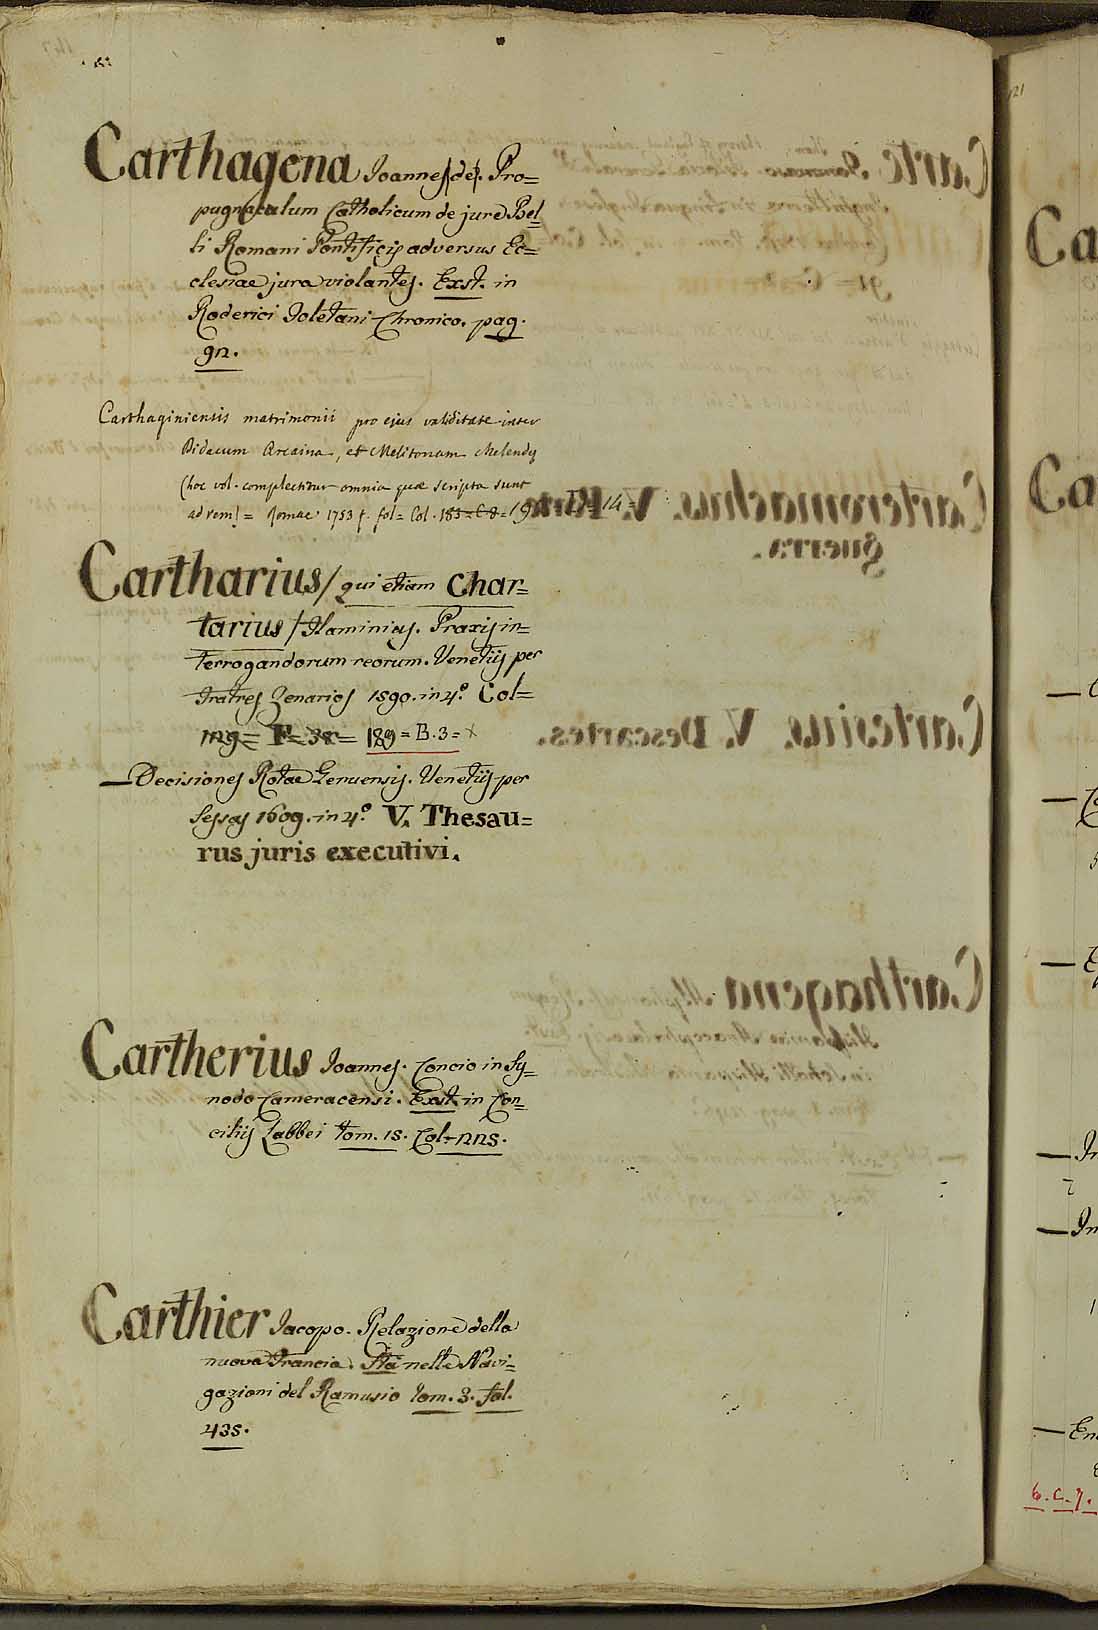 Carthagena Joannes de. Pro=
pugnaculum Catholicum de jure Bel=
li Romani Pontificis adversus Ec=
clesiae jura violantes. Exst. in
Roderici Toletani Chronico. pag.
92.
Carthaginiensis matrimonii pro ejus validitate inter
Didacum Arcaina, et Melitonam Melendez
(hoc vol. complectitur omnia quae scripta sunt
ad rem) = Romae. 1753 f. fol = Col. 183 = C. 8 = 19
Cartharius / qui etiam Char=
tarius / Flaminius. Praxis in=
terrogandorum reorum. Venetiis per
Fratres Zenarios 1590. in 4.º Col=
189 = B. 3 = x
— Decisiones Rotae Genuensis. Venetiis per
Sessas 1609. in 4.º V. Thesau=
rus juris executivi.
Cartherius Joannes. Concio in Sy=
nodo Cameracensi. Exst. in Con=
ciliis Labbei tom. 15. Col.
Carthier Jacopo. Relazione della
nuova Francia. Sta nelle Navi=
gazioni del Ramusio tom. 3. fol.
435.
6. C. 7.